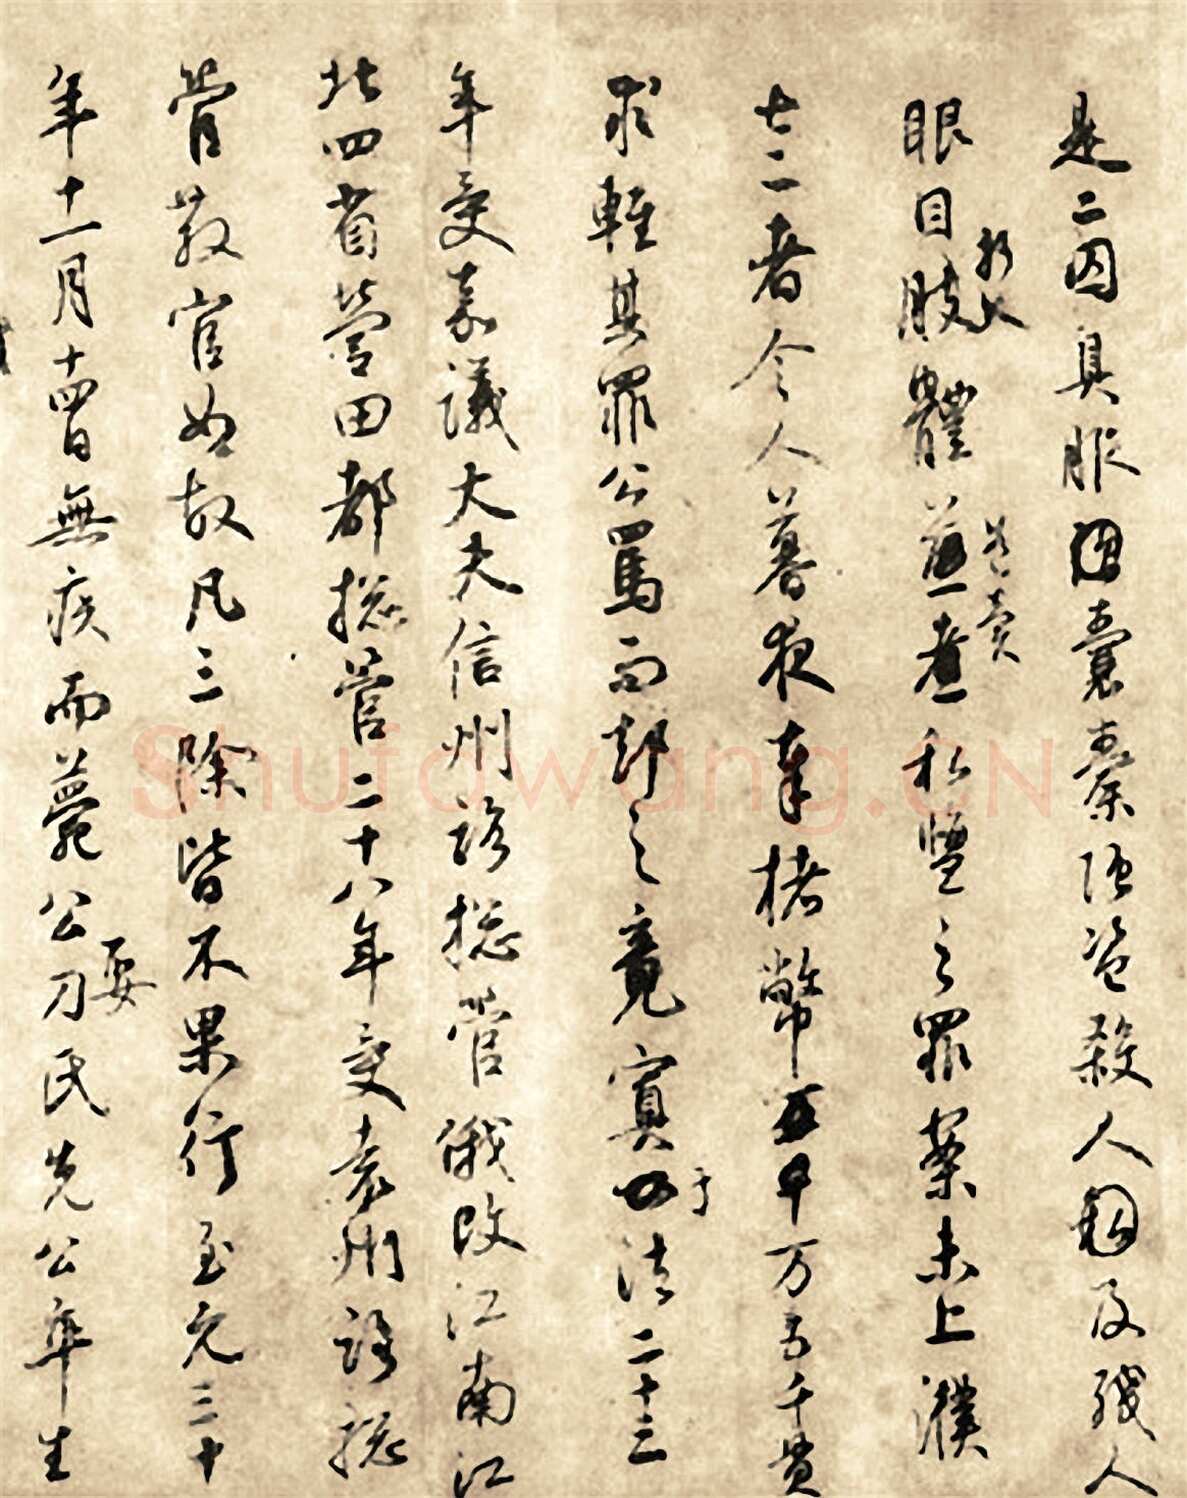 是二囚具服囊橐強盜殺人及殘人
眼目肢體煮私鹽之罪案未上濮
七二者令人暮夜奉楮幣万五千貫
求輕其罪公罵而却之竟寘于法二十三
年受嘉議大夫信州路総管俄改江南江
北四省營田都総管二十八年受袁州路総
管散官如故凡三除皆不果行至元三十
年十一月十四日無疾而薨公娶刁氏先公卒生
Shufawang.CN